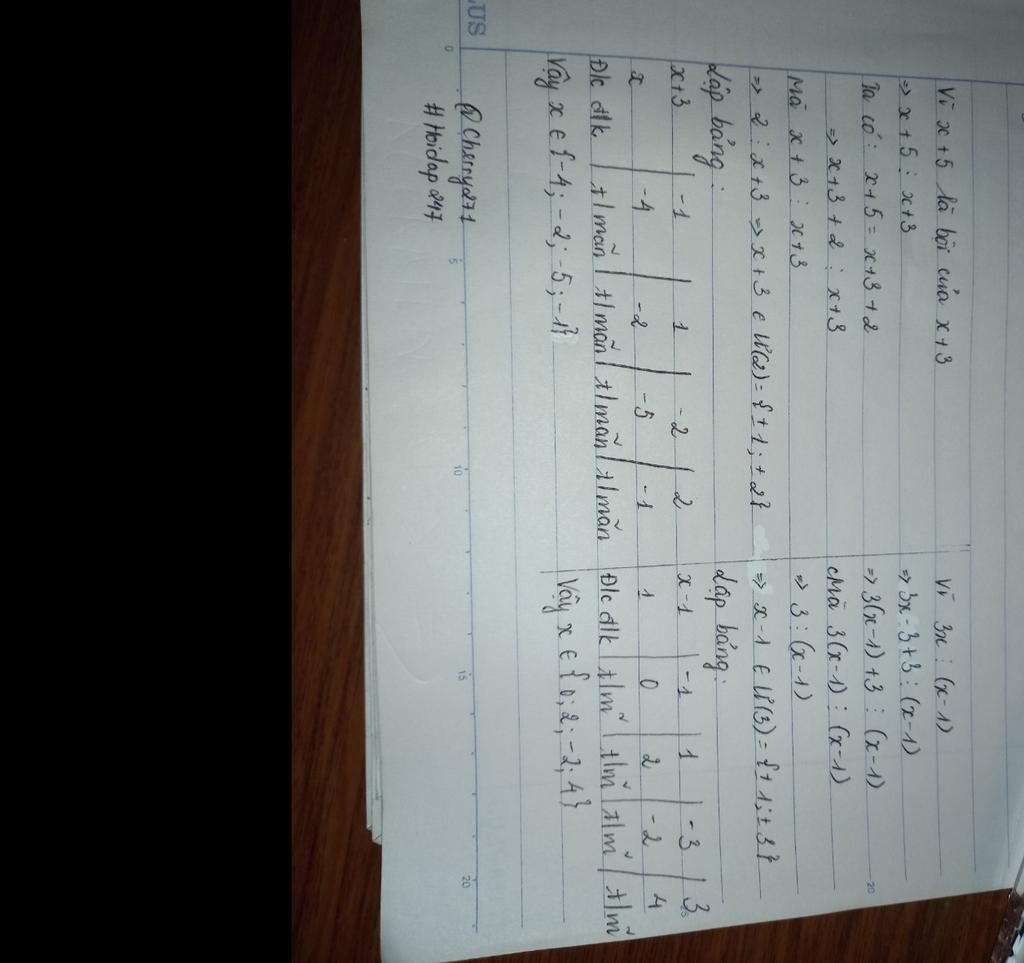 Vì x+5 là bội của x+3
=> x+5 ⋮ x+3
Ta có: x+5 = x+3+2
=> x+3+2 ⋮ x+3
Mà x+3 ⋮ x+3
=> 2 ⋮ x+3 => x+3 ∈ Ư(2) = {±1; ±2}
Lập bảng:
x+3 | -1 | 1 | -2 | 2
x | -4 | -2 | -5 | -1
Đ/c đ/k | t/mãn | t/mãn | t/mãn | t/mãn
Vậy x ∈ {-4; -2; -5; -1}
@Cherry271
#Hoidap247
Vì 3x ⋮ (x-1)
=> 3x-3+3 ⋮ (x-1)
=> 3(x-1)+3 ⋮ (x-1)
Mà 3(x-1) ⋮ (x-1)
=> 3 ⋮ (x-1)
=> x-1 ∈ Ư(3) = {±1; ±3}
Lập bảng:
x-1 | -1 | 1 | -3 | 3
1 | 0 | 2 | -2 | 4
Đ/c đ/k | t/m~ | t/m~ | t/m~ | t/m~
Vậy x ∈ {0; 2; -2; 4}
LUS
0 5 10 15 20
20